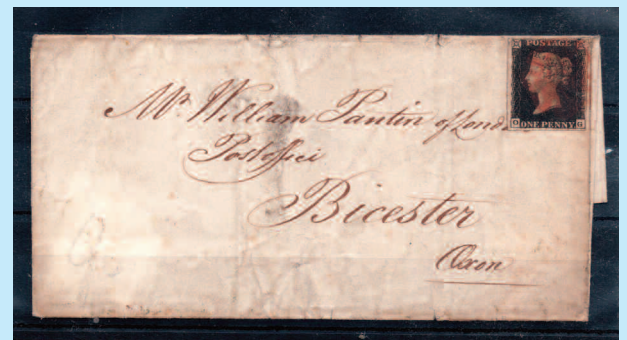 POSTAGE
ONE PENNY
Mr William Pantin of Lond
Postoffici
Bicester
Oxon